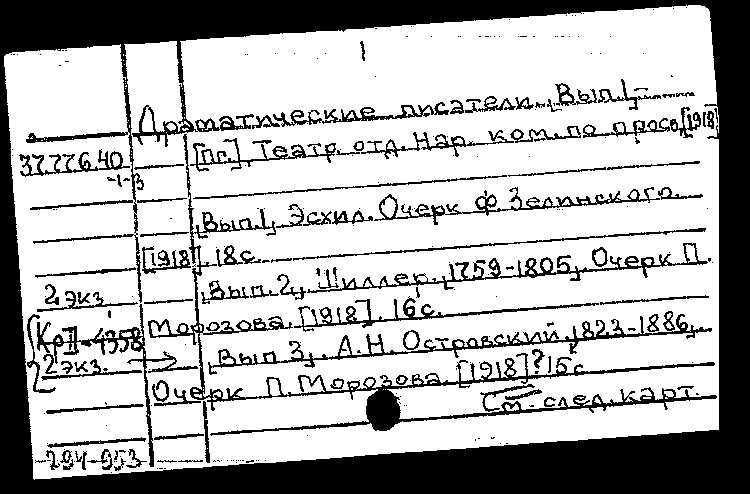 1
Драматические писатели. Вып.1,-
37.77.6.40 [Пг.], Театр. отд. Нар. ком. по просв, [1918]
-1-3
Вып.1, Эсхил. Очерк Ф. Зелинского.
[1918]. 18 с.
2 экз. Вып. 2, Шиллер. 1759-1805, Очерк П.
Морозова. [1918]. 16 с.
2 экз. Вып 3, А.Н. Островский, 1823-1886,
Очерк П. Морозова. [1918]? 15 с
См. след. карт.
294-953